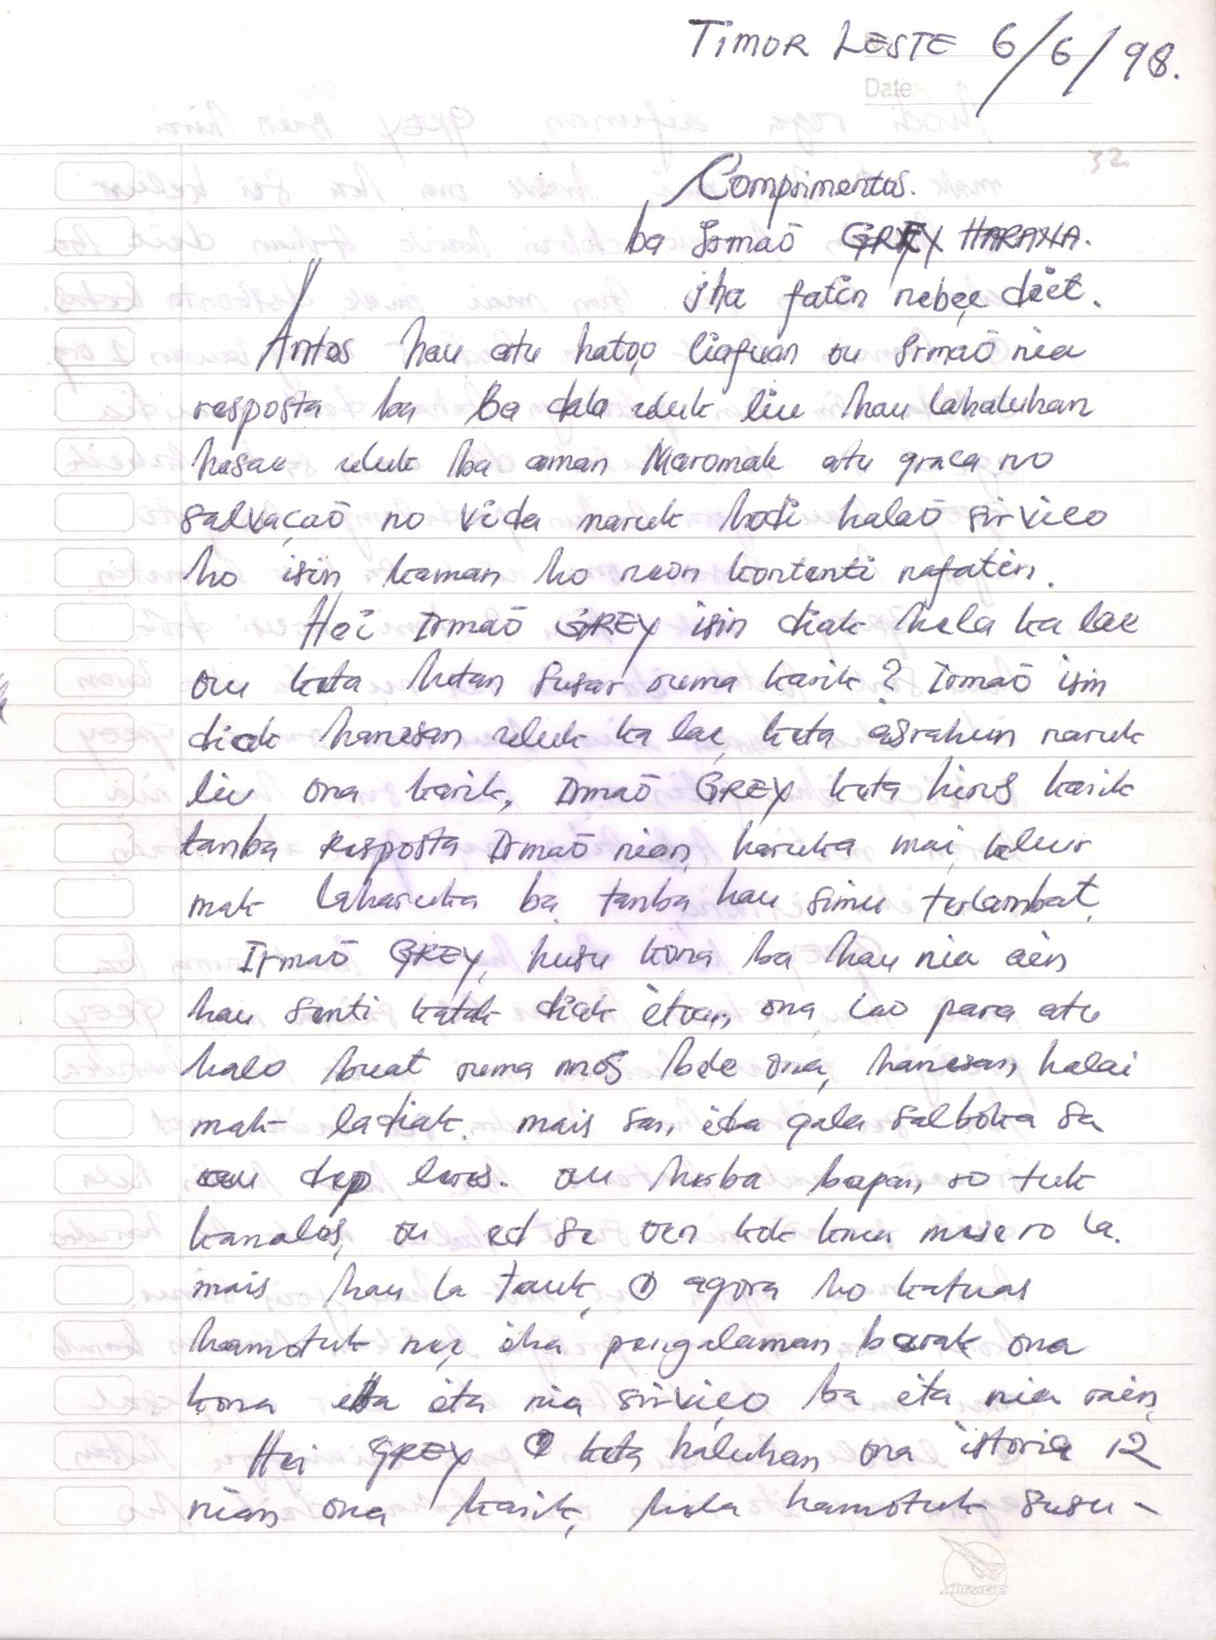 TIMOR LESTE 6/6/98.
Date
32
Comprimentos.
ba Irmaõ GREY HARANA.
iha fatin nebee deit.
Antes hau atu hatoo liafuan ou Irmaõ nia
resposta ba Ba dala uluk liu hau lahaluhan
hasae uluk ba aman Maromak atu graca no
salvaçaõ no vida naruk hodi halaõ sirvico
ho isin kaman ho neon kontenti nafatin.
Hei Irmaõ GREY isin diak hela ka lae
ou keta hetan susar ruma karik? Irmaõ isin
diak hanesan uluk ka lae, keta asrahun naruk
liu ona karik, Irmaõ GREY keta hirus karik
tanba Resposta Irmaõ nian haruka mai kleur
mak laharuka ba tanba hau simu terlambat,
Irmaõ GREY, husu kona ba hau nia ain
hau senti katak diak etuan ona lao para atu
halo buat ruma mos bele ona, hanesan halai
mak ladiak. mais san, ita gala salboka sa
ou dep loos. ou hirba bapan so tuk
kanalos, ou ed sa oen kok knua muse ro la.
mais hau la tauk, agora ho katuas
hamotuk nee iha pengalaman barak ona
kona ita nia sirviço ba ita nia rain,
Hei GREY keta haluhan ona istoria 12
nian ona karik, hela hamotuk susu-